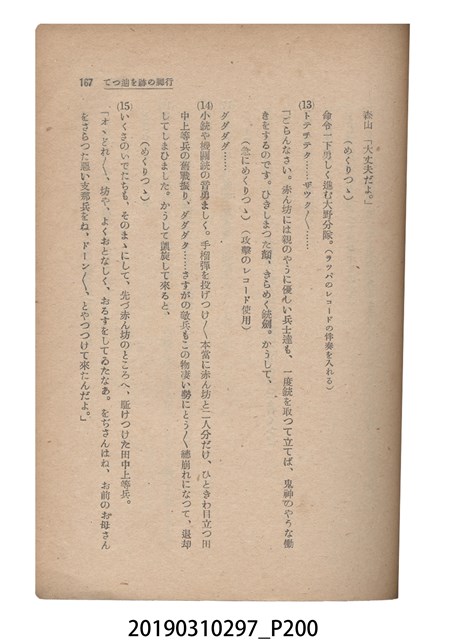 行脚の跡を趁つて 167
森山「大丈夫だよ。」
（めくりつゝ）
命令一下勇しく進む大野分隊。（ラッパのレコードの伴奏を入れる）
トテサテタ……ザツク〳〵……
(13)
「ごらんなさい。赤ん坊には親のやうに優しい兵士達も、一度銃を取つて立てば、鬼神のやうな働
きをするのです。ひきしまつた顔、きらめく銃劍。かうして、
（急にめくりつゝ）（攻擊のレコード使用）
ダダダダ……
(14)
小銃や機關銃の音勇ましく。手榴彈を投げつけ〳〵本當に赤ん坊と二人分だけ、ひときわ目立つ田
中上等兵の奮戰振り、ダダダダ……さすがの敵兵もこの物凄い勢にとう〳〵總崩れになつて、退却
してしまひました。かうして凱旋して來ると、
（めくりつゝ）
(15)
いくさのいでたちも、そのまゝにして、先づ赤ん坊のところへ、駈けつけた田中上等兵。
「オゝどれ〳〵、坊や、よくおとなしく、おるすをしてゐたなあ。をぢさんはね、お前のお母さん
をさらつた惡い支那兵をね、ドーン〳〵、とやつつけて來たんだよ。」
20190310297_P200